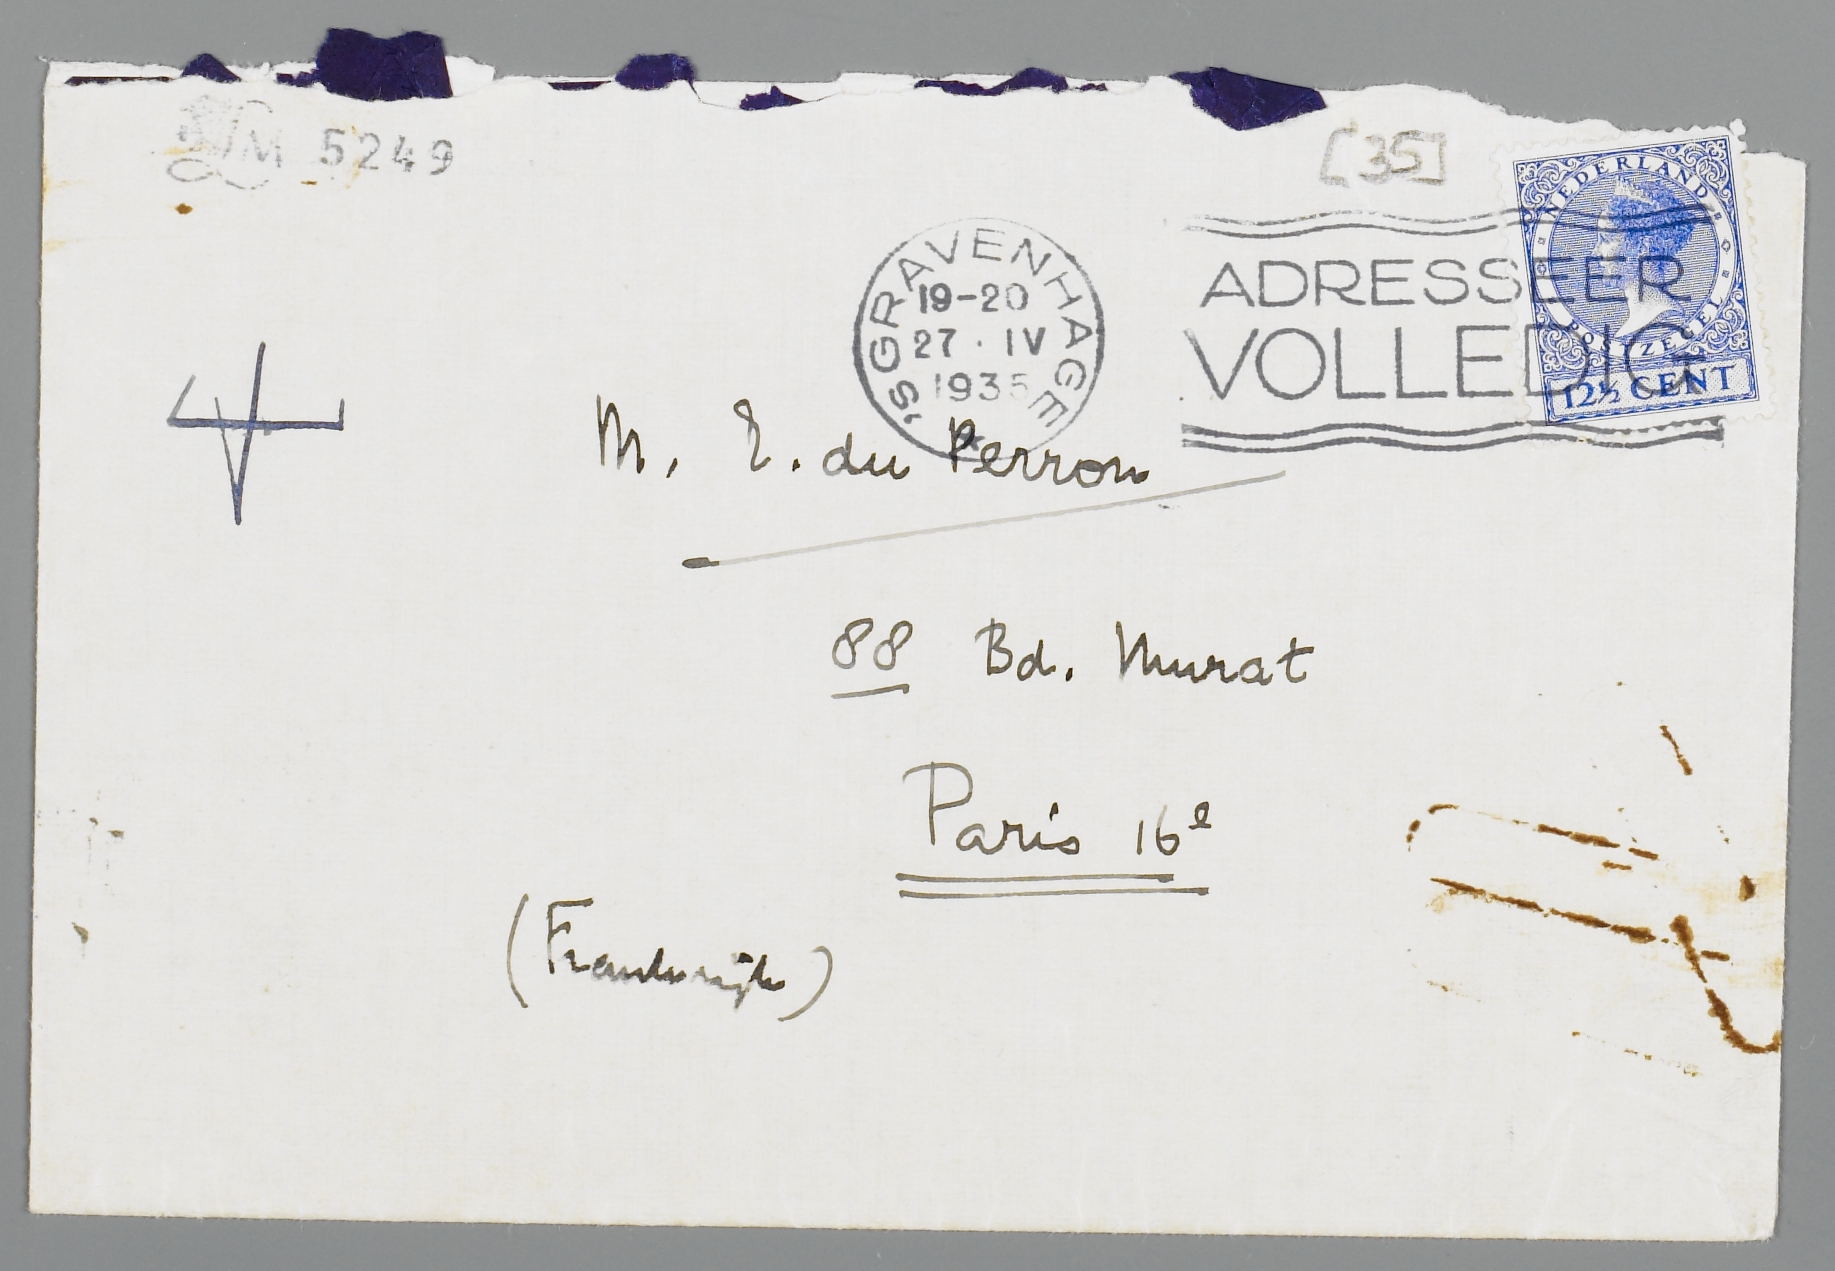 LM 5249
[35]
NEDERLAND
POSTZEGEL
12½ CENT
'SGRAVENHAGE
19-20
27 · IV
1935
ADRESSEER
VOLLEDIG
M. E. du Perron
88 Bd. Murat
Paris 16e
(Frankrijk)